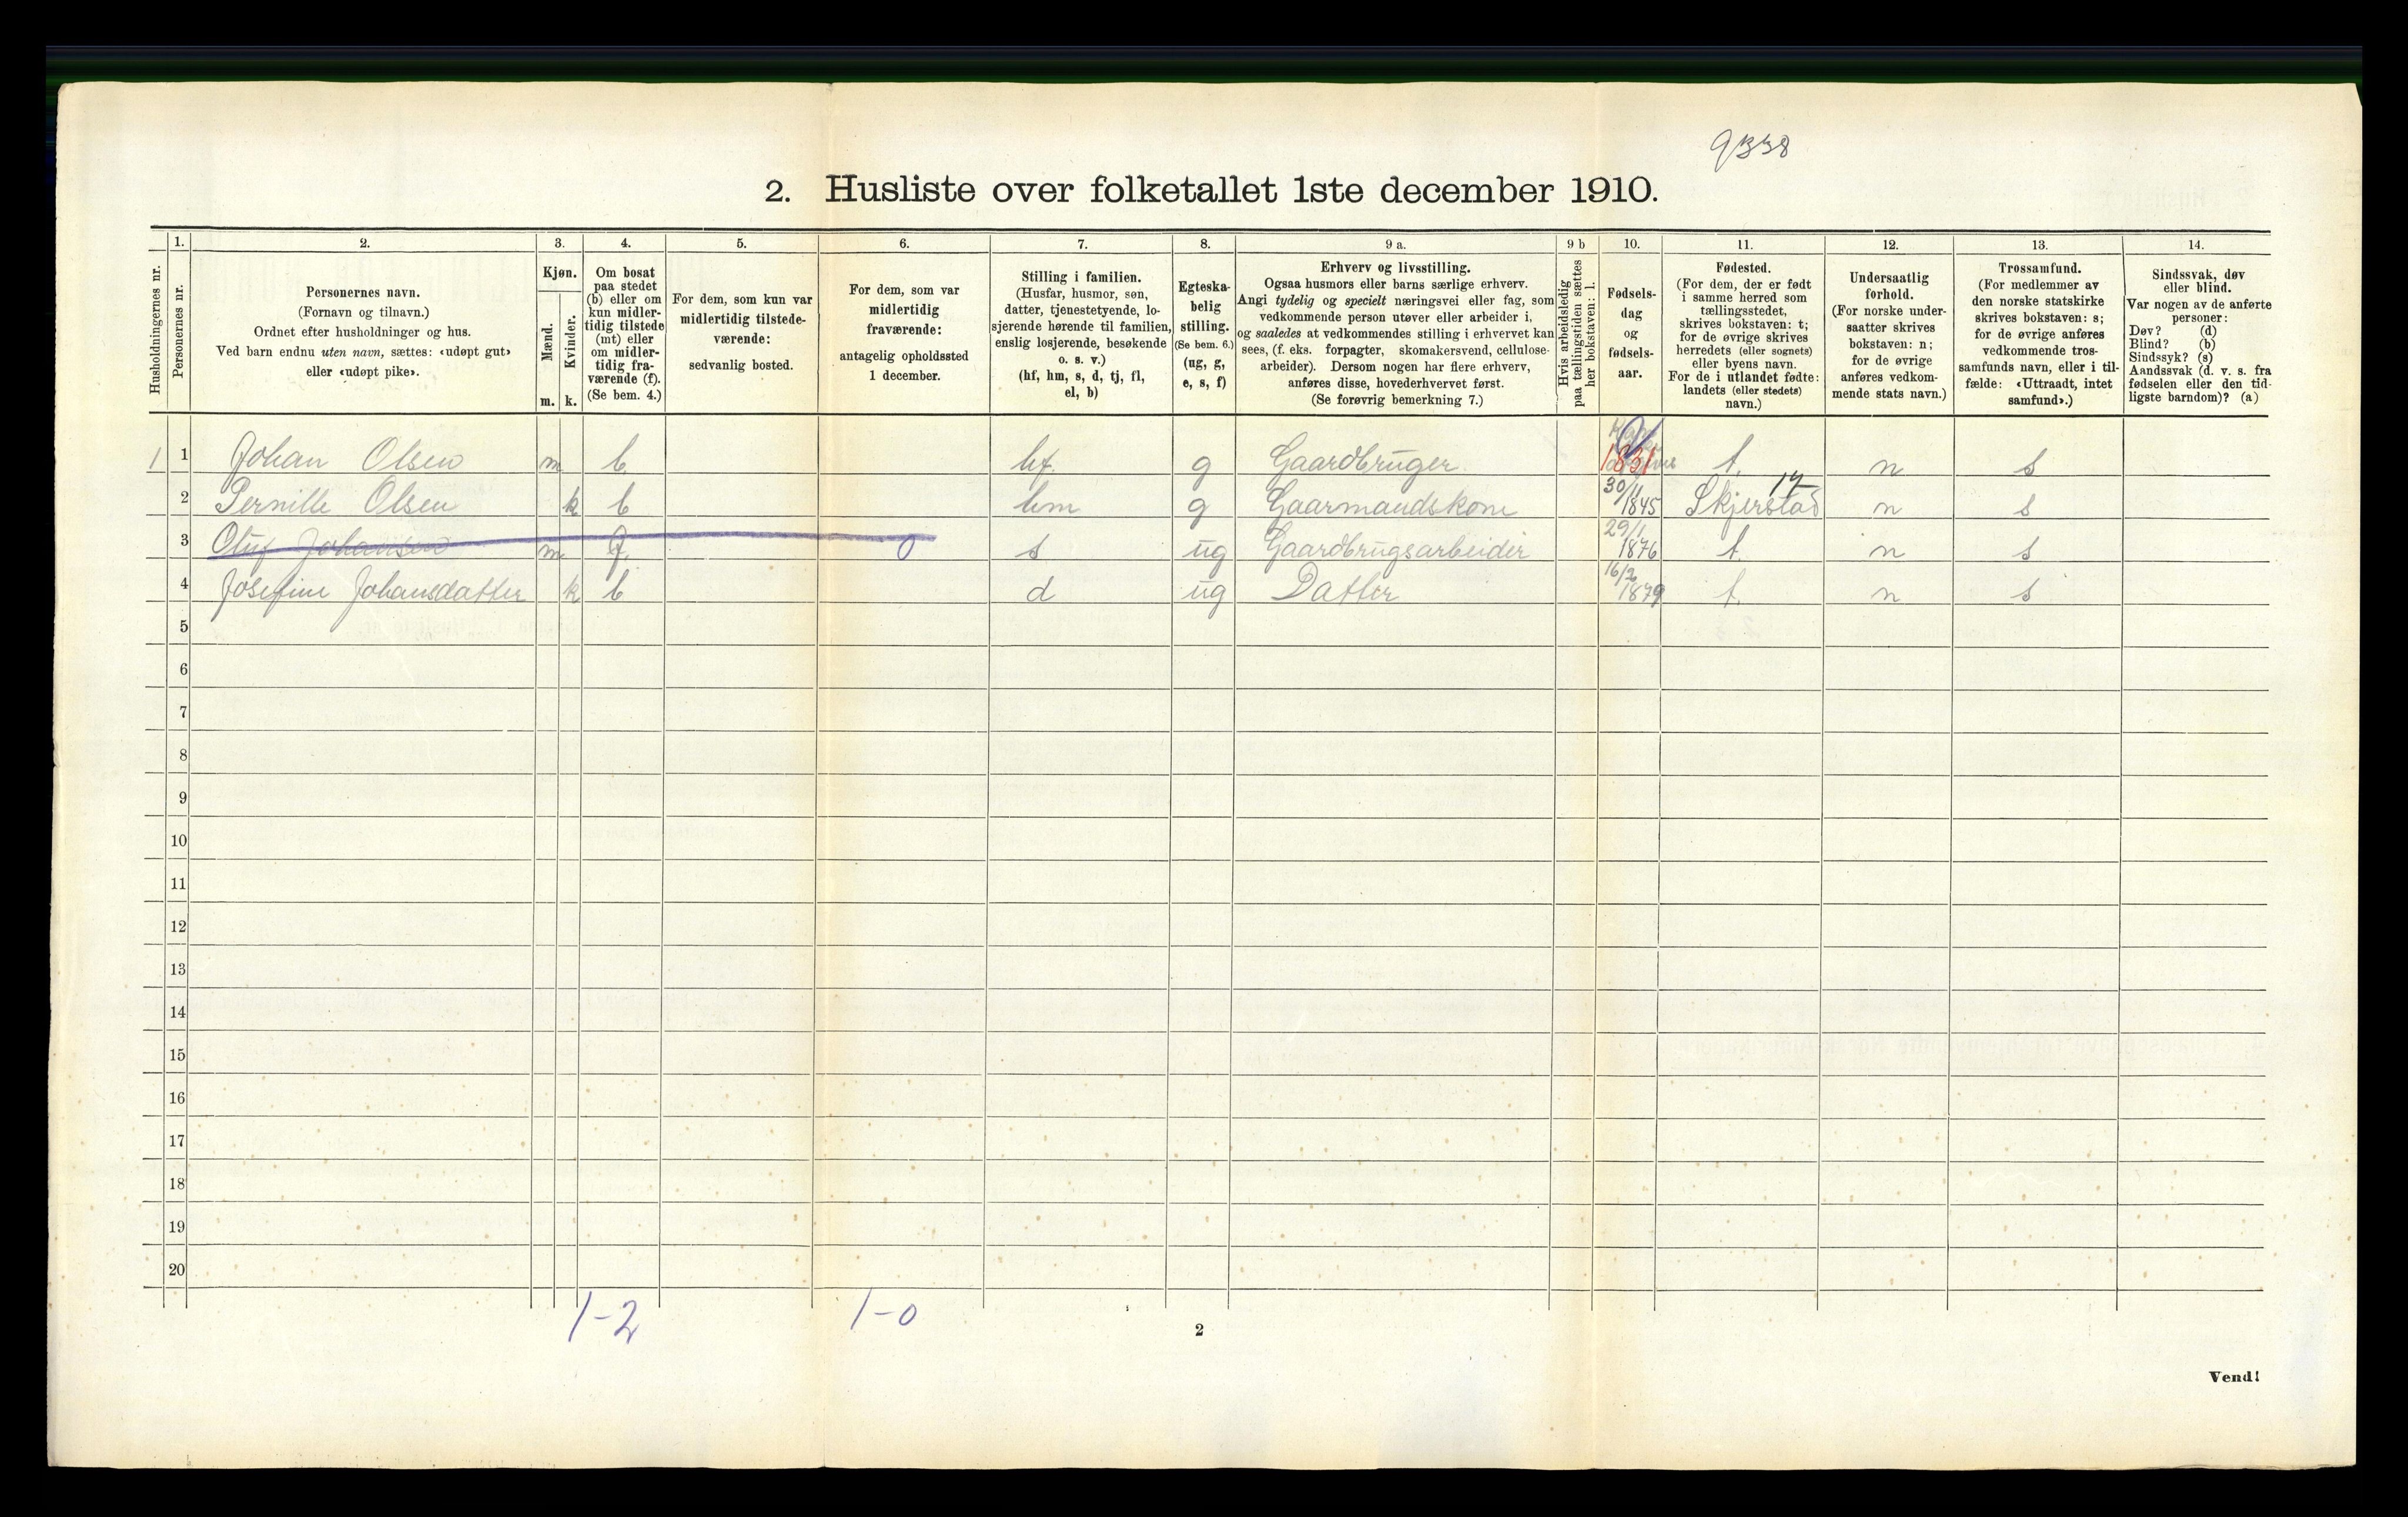 9338
2. Husliste over folketallet 1ste december 1910.
1. 2. 3. 4. 5. 6. 7. 8. 9 a. 9 b 10. 11. 12. 13. 14.
Husholdningernes nr.
Personernes nr.
Personernes navn.
(Fornavn og tilnavn.)
Ordnet efter husholdninger og hus.
Ved barn endnu uten navn, sættes: «udøpt gut»
eller «udøpt pike».
Kjøn.
Mænd.
Kvinder.
m. k.
Om bosat
paa stedet
(b) eller om
kun midler-
tidig tilstede
(mt) eller
om midler-
tidig fra-
værende (f).
(Se bem. 4.)
For dem, som kun var
midlertidig tilstede-
værende:
sedvanlig bosted.
For dem, som var
midlertidig
fraværende:
antagelig opholdssted
1 december.
Stilling i familien.
(Husfar, husmor, søn,
datter, tjenestetyende, lo-
sjerende hørende til familien,
enslig losjerende, besøkende
o. s. v.)
(hf, hm, s, d, tj, fl,
el, b)
Egteska-
belig
stilling.
(Se bem. 6.)
(ug, g,
e, s, f)
Erhverv og livsstilling.
Ogsaa husmors eller barns særlige erhverv.
Angi tydelig og specielt næringsvei eller fag, som
vedkommende person utøver eller arbeider i,
og saaledes at vedkommendes stilling i erhvervet kan
sees, (f. eks. forpagter, skomakersvend, cellulose-
arbeider). Dersom nogen har flere erhverv,
anføres disse, hovederhvervet først.
(Se forøvrig bemerkning 7.)
Hvis arbeidsledig
paa tællingstiden sættes
her bokstaven: l.
Fødsels-
dag
og
fødsels-
aar.
Fødested.
(For dem, der er født
i samme herred som
tællingsstedet,
skrives bokstaven: t;
for de øvrige skrives
herredets (eller sognets)
eller byens navn.
For de i utlandet fødte:
landets (eller stedets)
navn.)
Undersaatlig
forhold.
(For norske under-
saatter skrives
bokstaven: n;
for de øvrige
anføres vedkom-
mende stats navn.)
Trossamfund.
(For medlemmer av
den norske statskirke
skrives bokstaven: s;
for de øvrige anføres
vedkommende tros-
samfunds navn, eller i til-
fælde: «Uttraadt, intet
samfund».)
Sindssvak, døv
eller blind.
Var nogen av de anførte
personer:
Døv? (d)
Blind? (b)
Sindssyk? (s)
Aandssvak (d. v. s. fra
fødselen eller den tid-
ligste barndom)? (a)
1 1 Johan Olsen m b hf. g Gaardbruger 1831 t. n s
2 Pernille Olsen k b hm g Gaarmandskone 30/11 1845 Skjerstad 17 n s
3 Oluf Johansen m f 0 s ug Gaardbrugsarbeider 29/1 1876 t. n s
4 Josefine Johansdatter k b d ug Datter 16/2 1879 t. n s
5
6
7
8
9
10
11
12
13
14
15
16
17
18
19
20
1-2 1-0
2
Vend!